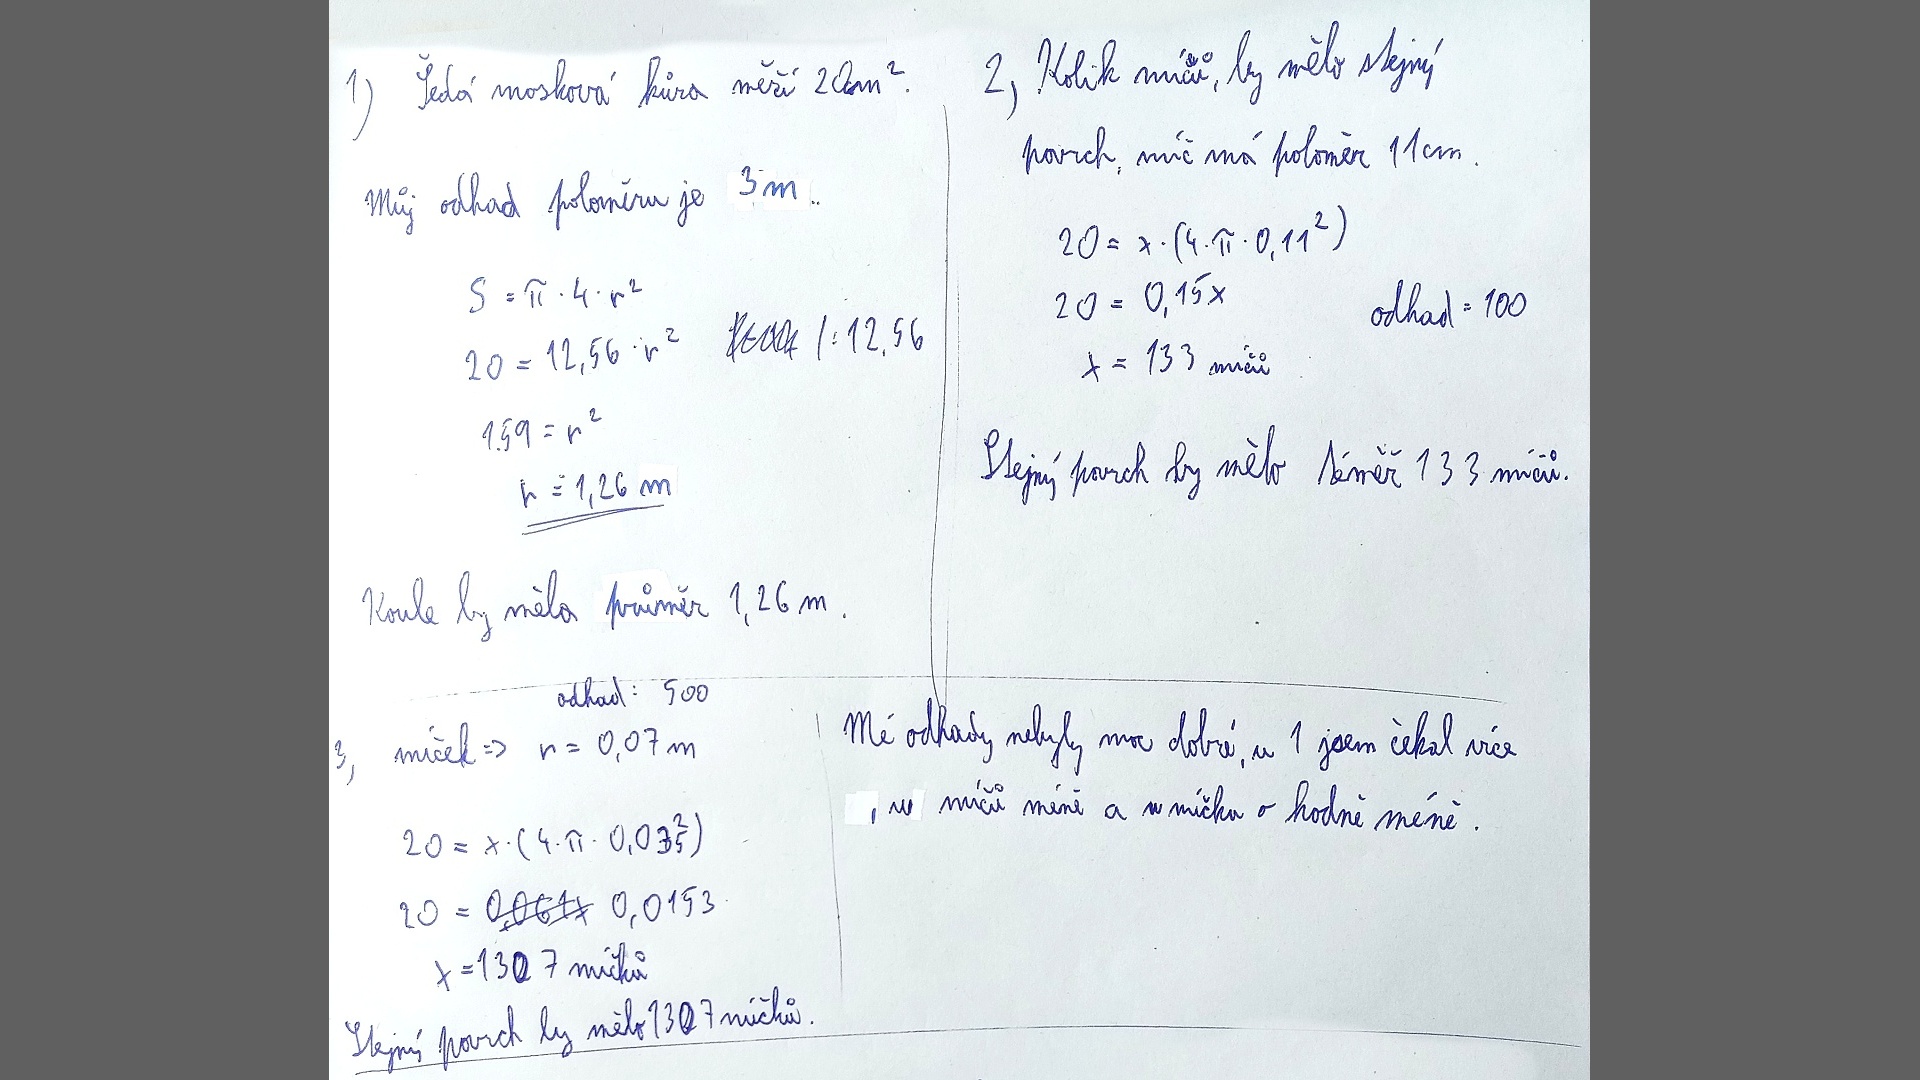 1) Šedá mosková kůra měří 20m².
Můj odhad poloměru je 3 m.
S = π · 4 · r²
20 = 12,56 · r² /: 12,56
1,59 = r²
r = 1,26 m
Koule by měla průměr 1,26 m.
2, Kolik míčů, by mělo stejný
povrch, míč má poloměr 11cm.
20 = x · (4 · π · 0,11²)
20 = 0,15x
odhad = 100
x = 133 míčů
Stejný povrch by mělo téměř 133 míčů.
odhad: 500
3, míček => r = 0,07 m
20 = x · (4 · π · 0,035²)
20 = 0,0153
x = 1307 míčků
Stejný povrch by mělo 1307 míčků.
Mé odhady nebyly moc dobré, u 1 jsem čekal více
, u míčů méně a u míčku o hodně méně.